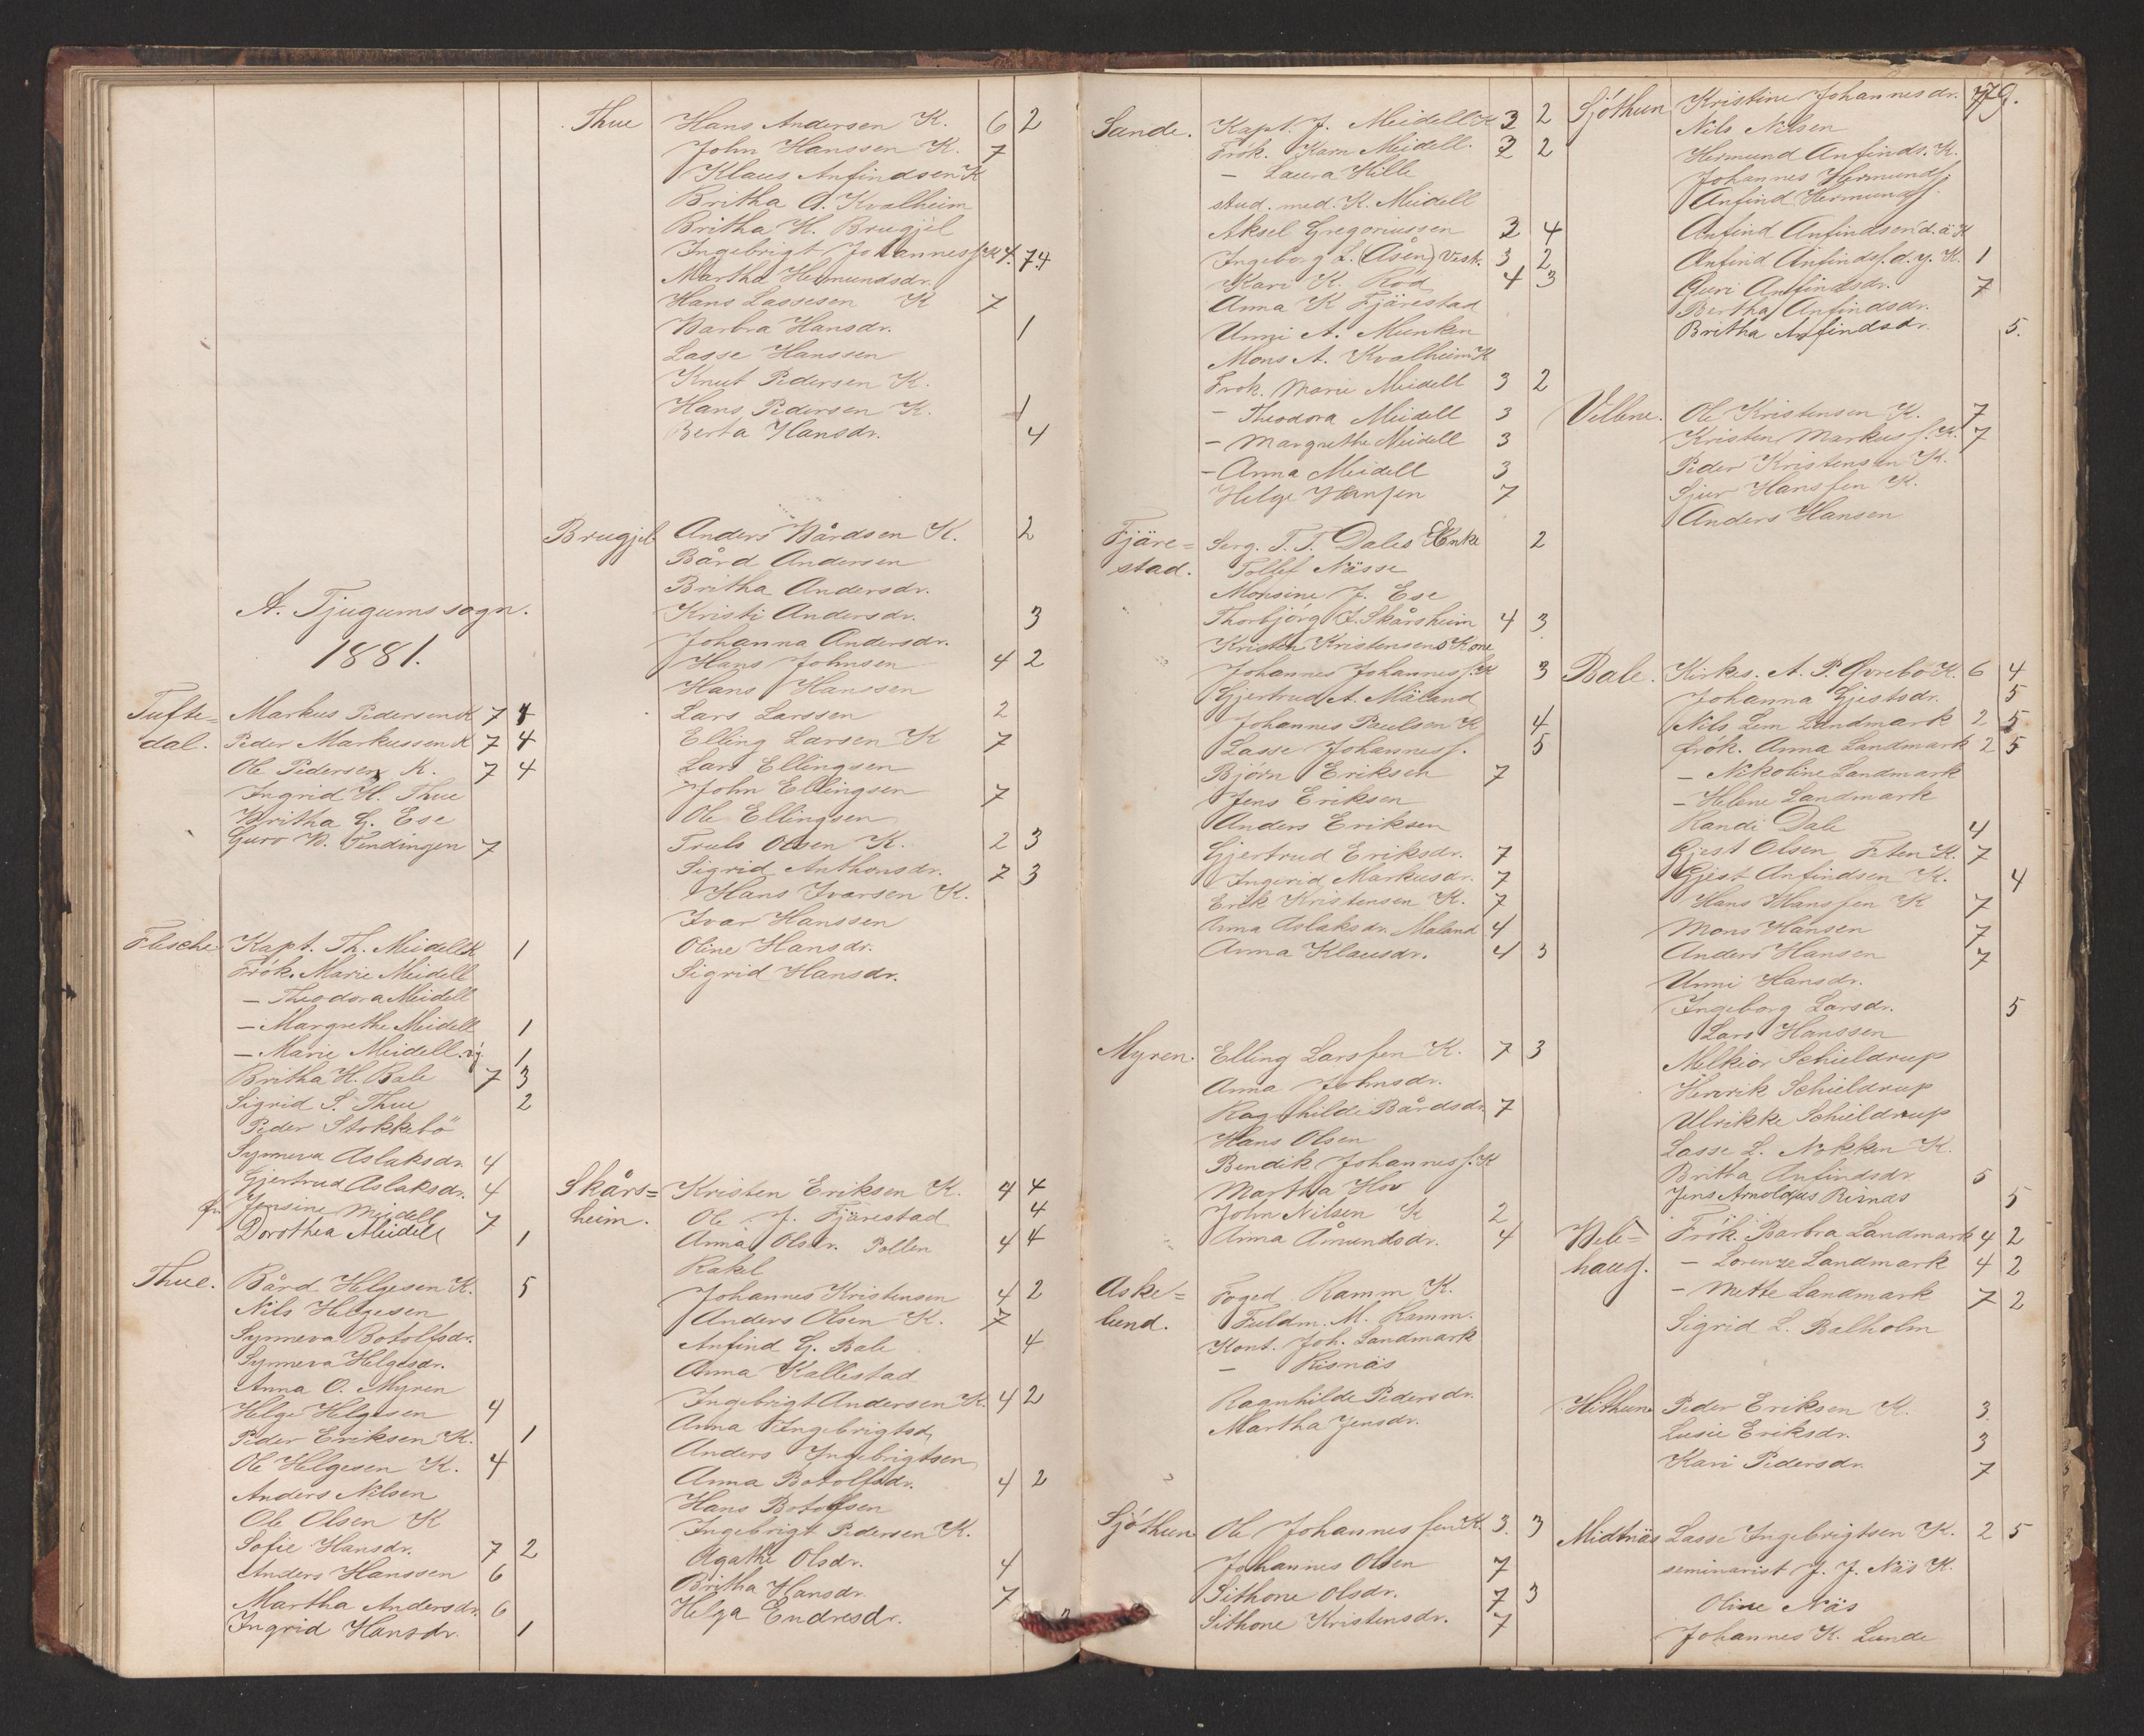 A. Tjugums sogn.
1881.
Tufte= Markus Pedersen K 7 4
dal. Peder Markussen K 7 4
Ole Pedersen K. 7 4
Ingrid H. Thue
Britha G. Ese
Guro N. Tendingen 7
Flesche Kapt. Th. Meidell K 1
Frök. Marie Meidell
— Theodora Meidell
— Margrethe Meidell 1
— Marie Meidell 1
Britha H. Bale 7 3
Sigrid S. Thue 2
Peder Stokkebö
Synneva Aslaksdr. 4
Gjertrud Aslaksdr. 4
fr. Jensine Meidell 7
Dorothea Meidell 1
Thue. Bård Helgesen K. 5
Nils Helgesen
Synneva Botolfsdr.
Synneva Helgesdr.
Anna O. Myren
Helge Helgesen 4
Peder Eriksen K. 1
Ole Helgesen K. 4
Anders Nilsen
Ole Olsen K
Sofie Hansdr. 7 2
Anders Hanssen 6
Martha Andersdr. 6
Ingrid Hansdr. 1
Thue Hans Andersen K. 6 2
John Hanssen K. 7
Klaus Anfindsen K
Britha A. Kvalheim
Britha H. Brugjel
Ingebrigt Johannesf. K 7. 74
Martha Hermundsdr.
Hans Lassesen K 7
Barbra Hansdr. 1
Lasse Hanssen
Knut Pedersen K.
Hans Pedersen K. 1
Berta Hansdr. 4
Brugjel Anders Bårdsen K. 2
Bård Andersen
Britha Andersdr.
Kristi Andersdr. 3
Johanna Andersdr.
Hans Johnsen 4 2
Hans Hanssen
Lars Larssen 2
Elling Larsen K 7
Lars Ellingsen
John Ellingsen 7
Ole Ellingsen
Truls Olsen K. 2 3
Sigrid Anthonsdr. 7 3
Hans Ivarsen K.
Ivar Hanssen
Oline Hansdr.
Sigrid Hansdr.
Skårs= Kristen Eriksen K. 4 4
heim. Ole J. Fjärestad 4
Anna Olsdr. Pollen 4 4
Rakel
Johannes Kristensen 4 2
Anders Olsen K. 7
Anfind G. Bale 4
Anna Kallestad
Ingebrigt Andersen K. 4 2
Anna Ingebrigtsd.
Anders Ingebrigtsen
Anna Botolfsdr. 4 2
Hans Botolfsen
Ingebrigt Pedersen K.
Agathe Olsdr. 4
Britha Hansdr. 7
Helga Endresdr.
Sande. Kapt. J. Meidell K 3 2
Frök. Karn Meidell. 3 2
— Laura Hille
stud. med. K. Meidell
Aksel Gregoriussen 3 4
Ingeborg L. (Åsen) Vesk. 3 2
Kari K. Röd 4 3
Anna K Fjärestad
Unni A. Munken
Mons A. Kvalheim K
Frok. Marie Meidell 3 2
— Theodora Meidell 3
— Margrethe Meidell 3
— Anna Meidell 3
Helge Hansen 7
Fjäre= Serg. T. T. Dales Enke 2
stad. Tollef Nässe
Monsine J. Ese
Thorbjörg J. Skårsheim 4 3
Kristen Kristensens Kone
Johannes Johannesf. K 3
Gjertrud A. Mäland
Johannes Paulsen K 4
Lasse Johannesf. 5
Björn Eriksen 7
Jens Eriksen
Anders Eriksen
Gjertrud Eriksdr. 7
Ingerid Markusdr. 7
Erik Kristensen K. 7
Anna Aslaksdr. Maland 4
Anna Klausdr. 4 3
Myren. Elling Larssen K. 7 3
Anna Johnsdr.
Ragnhilde Bårdsdr. 7
Hans Olsen
Bendik Johannesf. K
Martha Hov
John Nilsen K 2
Anna Åmundsdr. 4
Aske= Foged Ramm K.
lund. Fuldm. M. Ramm.
Kont. Joh. Landmark
— Risnäs
Ragnhilde Pedersdr.
Martha Jensdr.
Sjöthun Ole Johannessen K. 3. 3
Johannes Olsen 7
Sithone Olsdr. 7 3
Sithone Kristensdr. 7
Sjöthun Kristine Johannesdr. 79.
Nils Nilsen
Hermund Anfinds. K.
Johannes Hermundsf.
Anfind Hermundsf.
Anfind Anfindsen d. ä. K
Anfind Anfindsf. d. y. K. 1
Guri Anfindsdr. 7
Bertha Anfindsdr.
Britha Anfindsdr. 5.
Vellene. Ole Kristensen K. 7
Kristen Markusf. K. 7
Peder Kristensen K.
Sjur Hanssen K.
Anders Hansen
Bale. Kirkes. A. P. Övrebö K. 6 4
Johanna Gjestsdr. 5
Nils Lem Landmark 2 5
frök. Anna Landmark 2 5
— Nikoline Landmark
— Helene Landmark
Randi Dale 4
Gjest Olsen Feten K. 7
Gjest Anfindsen K. 4
Hans Hanssen K 7
Mons Hansen 7
Anders Hansen 7
Unni Hansdr.
Ingeborg Larsdr. 5
Lars Hanssen
Melkior Schieldrup
Henrik Schieldrup
Ulrikke Schieldrup
Lasse L. Nokken K.
Britha Anfindsdr. 5
Jens Arnoldus Risnäs 5
Bele= Frök. Barbra Landmark 4 2
haug. — Lorenze Landmark 4 2
— Mette Landmark 7 2
Sigrid L. Balholm
Hithun Peder Eriksen K. 3
Lusie Eriksdr. 3
Kari Pedersdr. 7
Midtnäs Lasse Ingebrigtsen K. 2 5
seminarist J. J. Näs K.
Oline Näs
Johannes K. Lunde